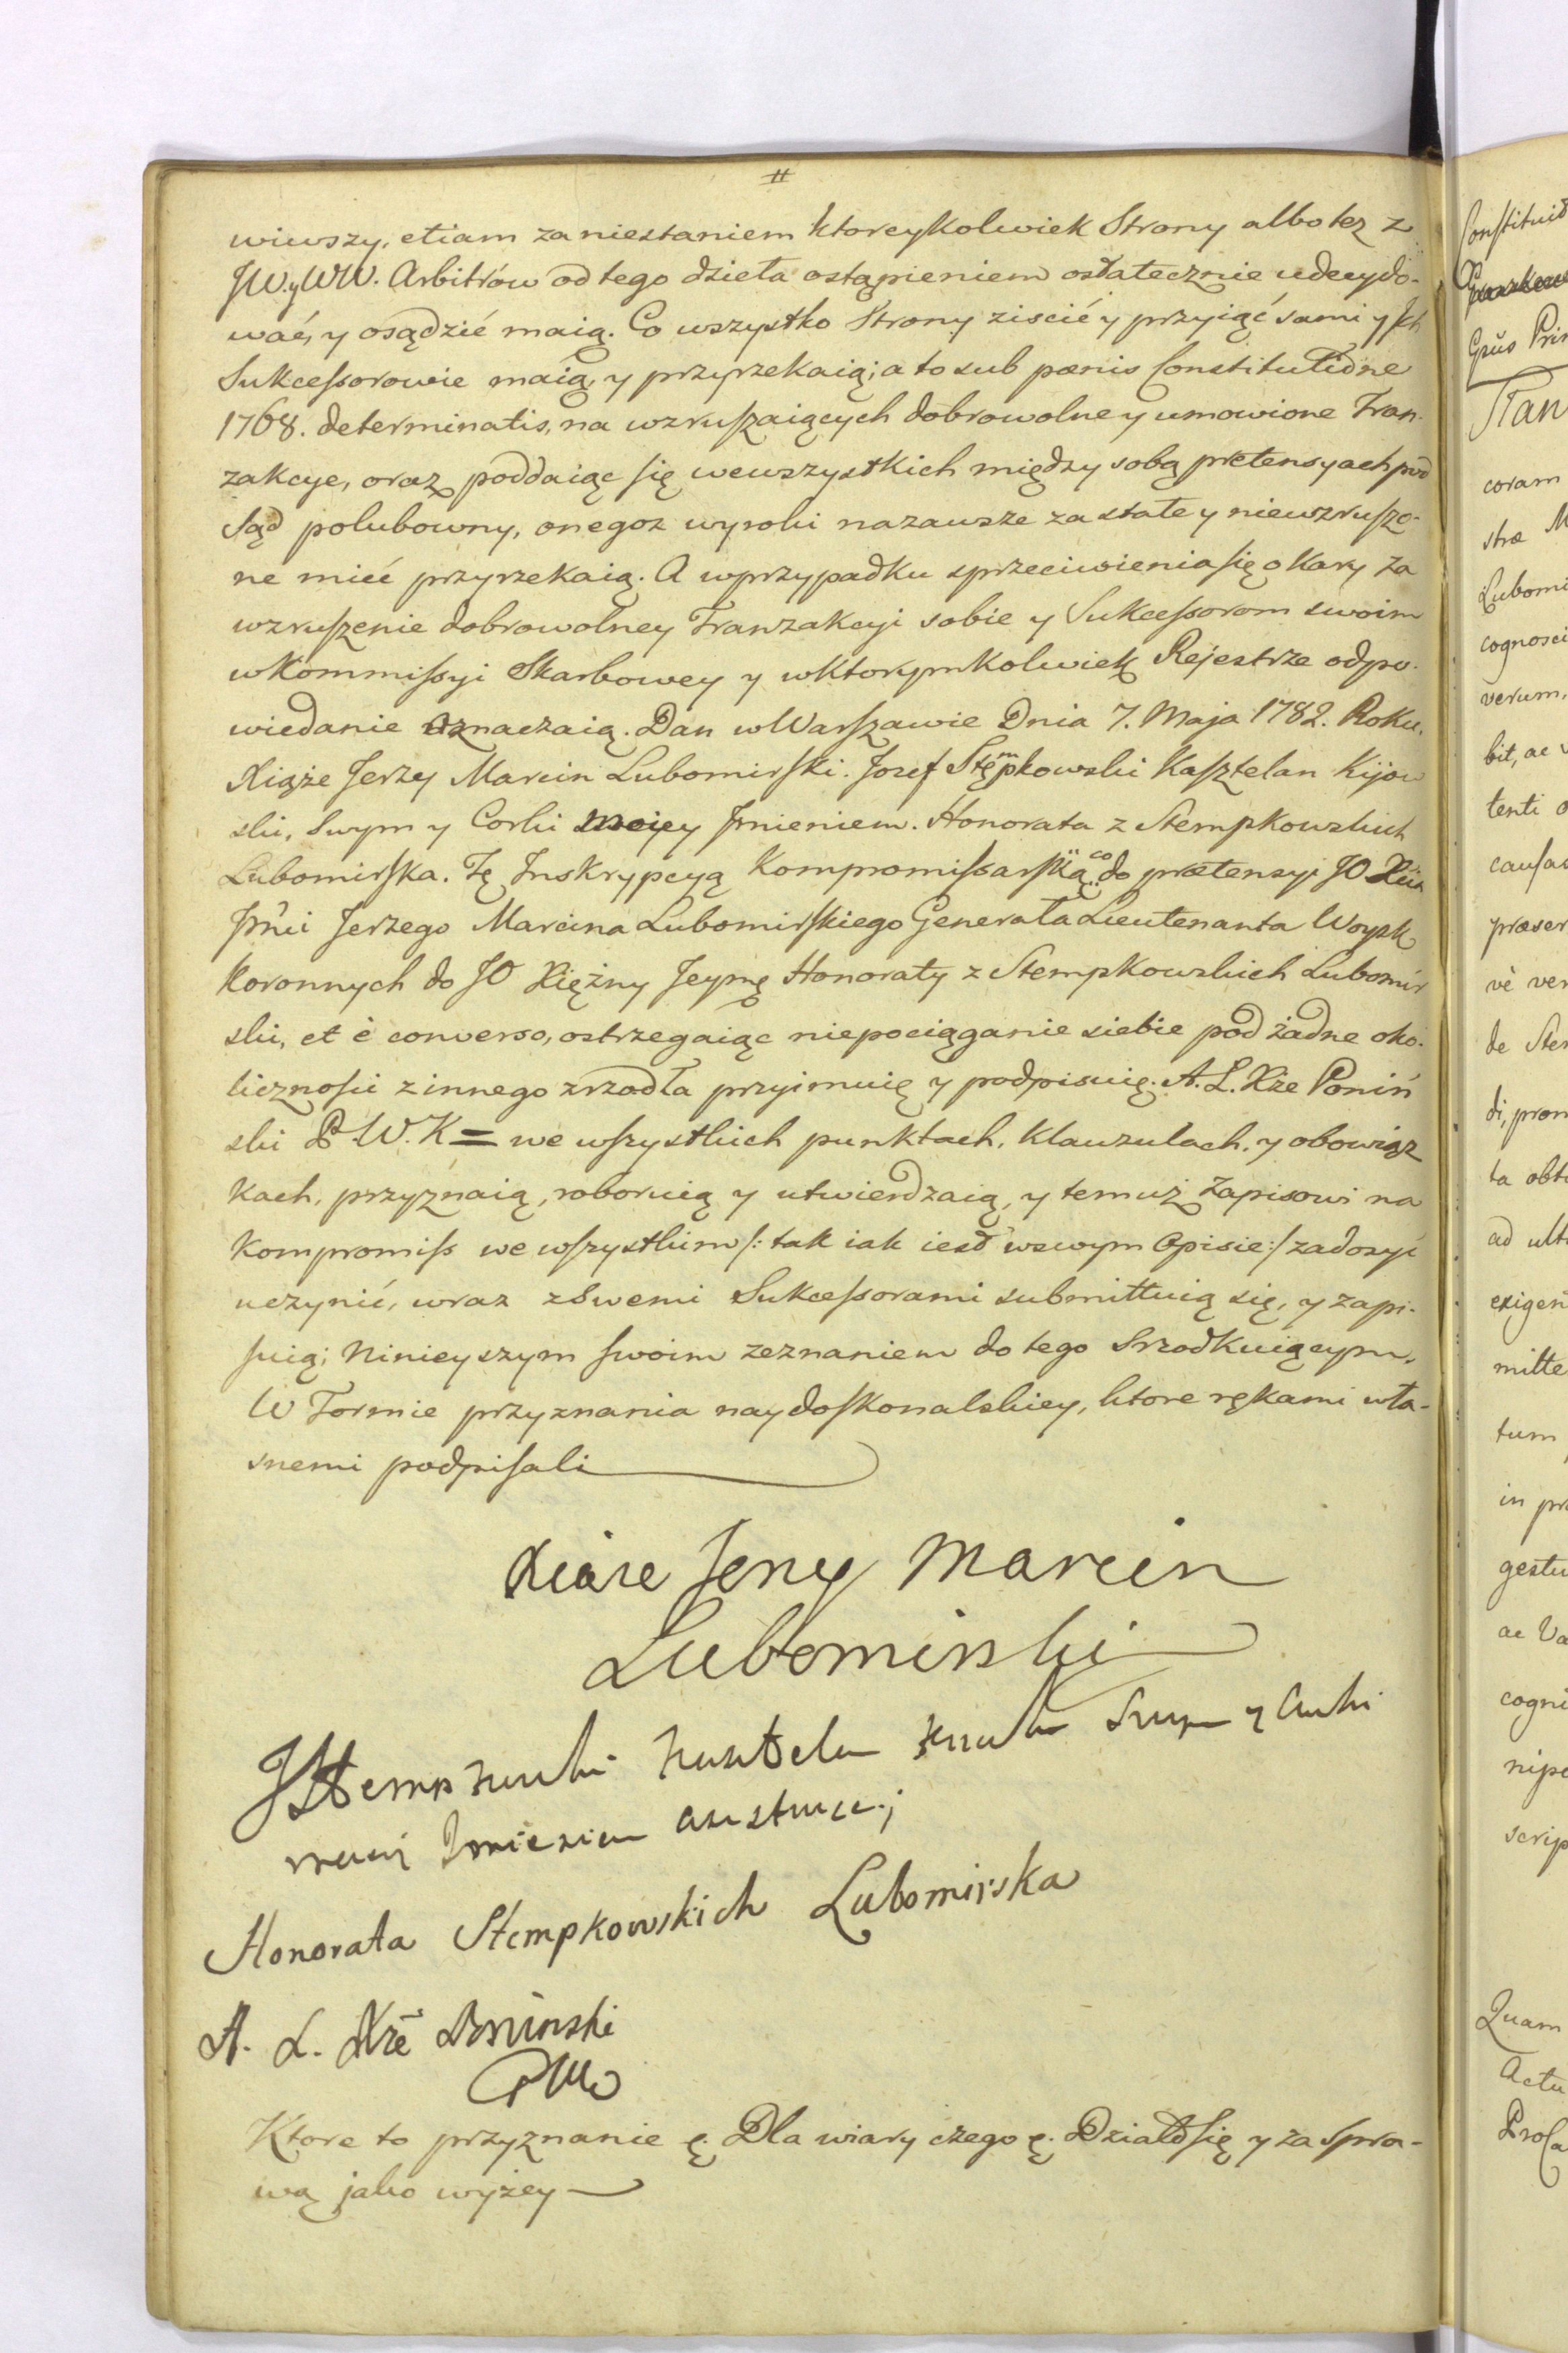 wiwszy, etiam za niestaniem ktoreykolwiek Strony albo tez z
JW. y WW. Arbitrów od tego dzieła ostąpieniem ostatecznie udecydo-
wać, y osądzić maią. Co wszystko Strony ziscić y przyiąć sami y Jch
Sukcessorowie maią, y przyrzekaią; a to sub pœnis Constitutiõne
1768. determinatis, na wzruszaiących dobrowolne y umowione Tran-
zakcye, oraz poddaiąc się wewszystkich między sobą prœtensyach pod
Sąd polubowny, onegoz wyroki nazawsze za stałe y niewzruszo-
ne mieć przyrzekaią. A wprzypadku sprzeciwienia się o Kary za
wzruszenie dobrowolney Tranzakcyi sobie y Sukcessorom swoim
w Kommissyi Skarbowey y wktorymkolwiek Rejestrze odpo-
wiedanie oznaczaią. Dan w Warszawie Dnia 7. Maja 1782. Roku.
Xiąże Jerzy Marcin Lubomirski. Jozef Stęmpkowski Kasztelan Kijow
ski, Swym y Corki moiey Jmieniem. Honorata z Stempkowskich
Lubomirska. Tę Inskrypcyą Kompromissarską co do prœtensyi JO Xiia
Jmci Jerzego Marcina Lubomirskiego Generała Lieutenanta Woysk
Koronnych do JO Xiężny Jeymę Honoraty z Stempkowskich Lubomir
ski, et è converso, ostrzegaiąc niepociąganie siebie pod żadne oko-
licznosci z innego zrzodła przyimuię y podpisuię. A. L. Xże Poniń
ski P W. K = we wszystkich punktach, Klauzulach, y obowiąz
kach, przyznaią, roboruią y utwierdzaią, y temuż Zapisowi na
Kompromiss we wszystkim /: tak iak iest wswym Opisie :/ zadosyć
uczynić, wraz z Swemi Sukcessorami submittuią się, y zapi-
suią; Ninieyszym swoim zeznaniem do tego Srzodkuiącym.
W Formie przyznania naydoskonalskiey, ktore rękami wła-
snemi podpisali
Xiaze Jerzy Marcin
Lubomirski
JStempkowski Kasztelan Swym y Corki
Imieniem
Honorata Stempkowskich Lubomirska
A. L. Xże Poninski
PWK
Ktore to przyznanie ę. Dla wiary czego ę. Działo się y za Spra-
wą jako wyżey